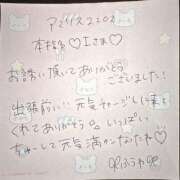 アマリリス2202
本指名♡Iさま♡
お誘い頂いてありがとうございました!
出張前に!元気チャージしに来て
くれてありがとう いっぱい
ちゅーして元気満タンなったね♡